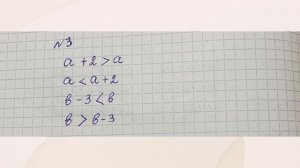 №3
a + 2 > a
a < a + 2
в - 3 < в
в > в - 3